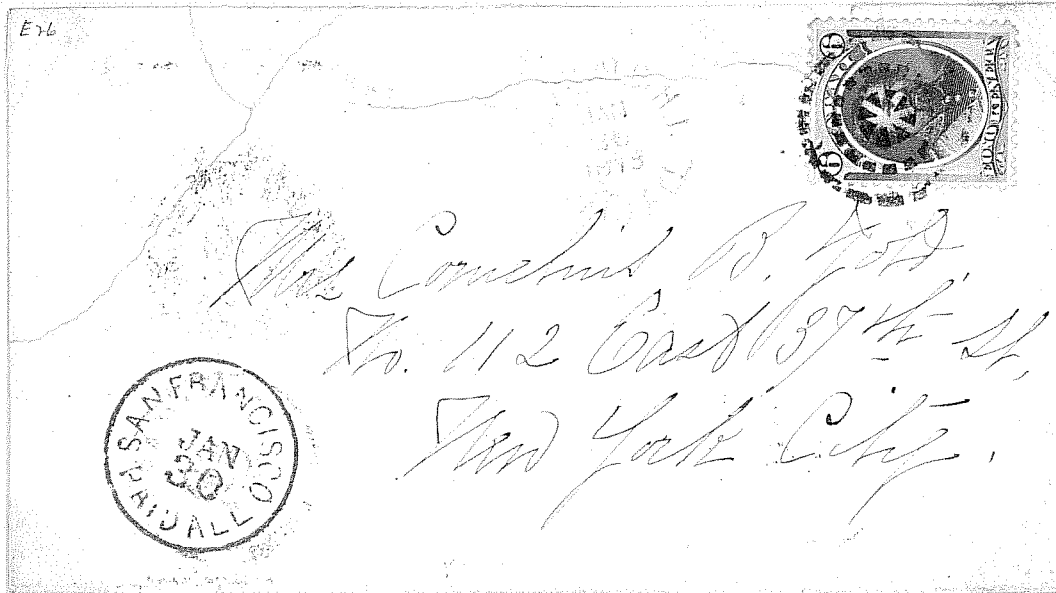 E26
JAN
1873
Mrs Cornelius B. Gold,
No. 112 East 37th St,
New York City.
SAN FRANCISCO
JAN
30
PAID ALL